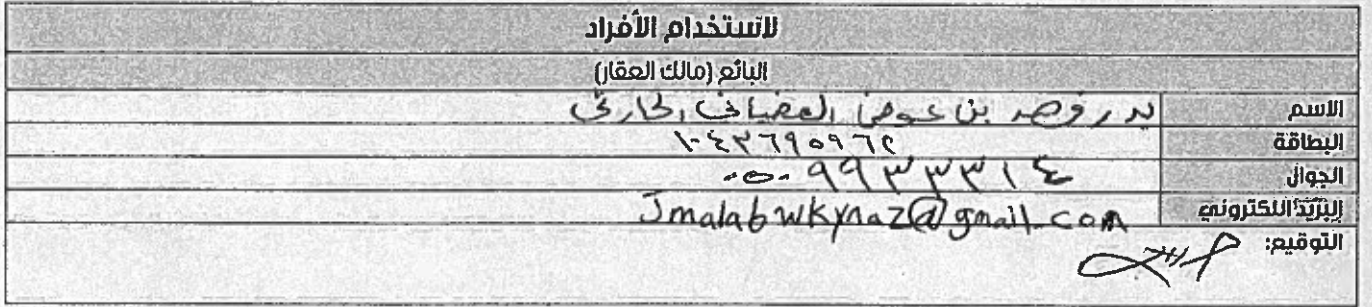 لاستخدام الأفراد
البائع (مالك العقار)
الاسم بدر فهد بن عوض العضياني الحارثي
البطاقة ١٠٤٣٦٩٥٩٦٢
الجوال ٠٥٠٩٩٣٣٣١٤
البريد الالكتروني Jmalabwkynaz@gmail.com
التوقيع: